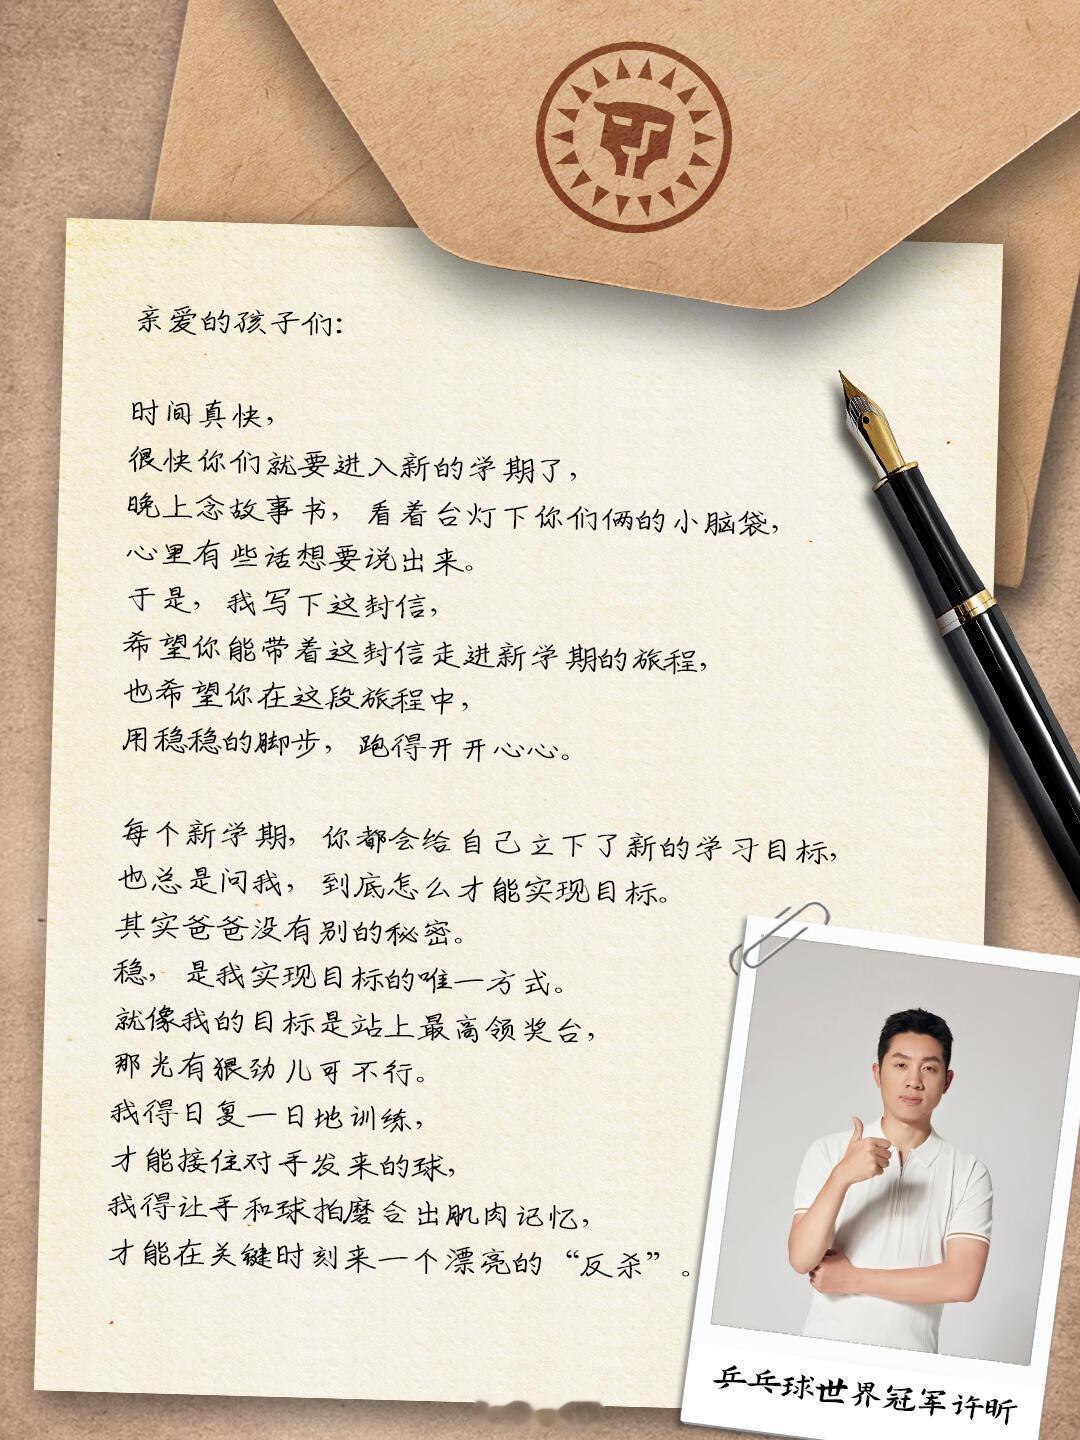 亲爱的孩子们:
时间真快，
很快你们就要进入新的学期了，
晚上念故事书，看着台灯下你们俩的小脑袋，
心里有些话想要说出来。
于是，我写下这封信，
希望你能带着这封信走进新学期的旅程，
也希望你在这段旅程中，
用稳稳的脚步，跑得开开心心。
每个新学期，你都会给自己立下了新的学习目标，
也总是问我，到底怎么才能实现目标。
其实爸爸没有别的秘密。
稳，是我实现目标的唯一方式。
就像我的目标是站上最高领奖台，
那光有狠劲儿可不行。
我得日复一日地训练，
才能接住对手发来的球，
我得让手和球拍磨合出肌肉记忆，
才能在关键时刻来一个漂亮的“反杀”。
乒乓球世界冠军许昕